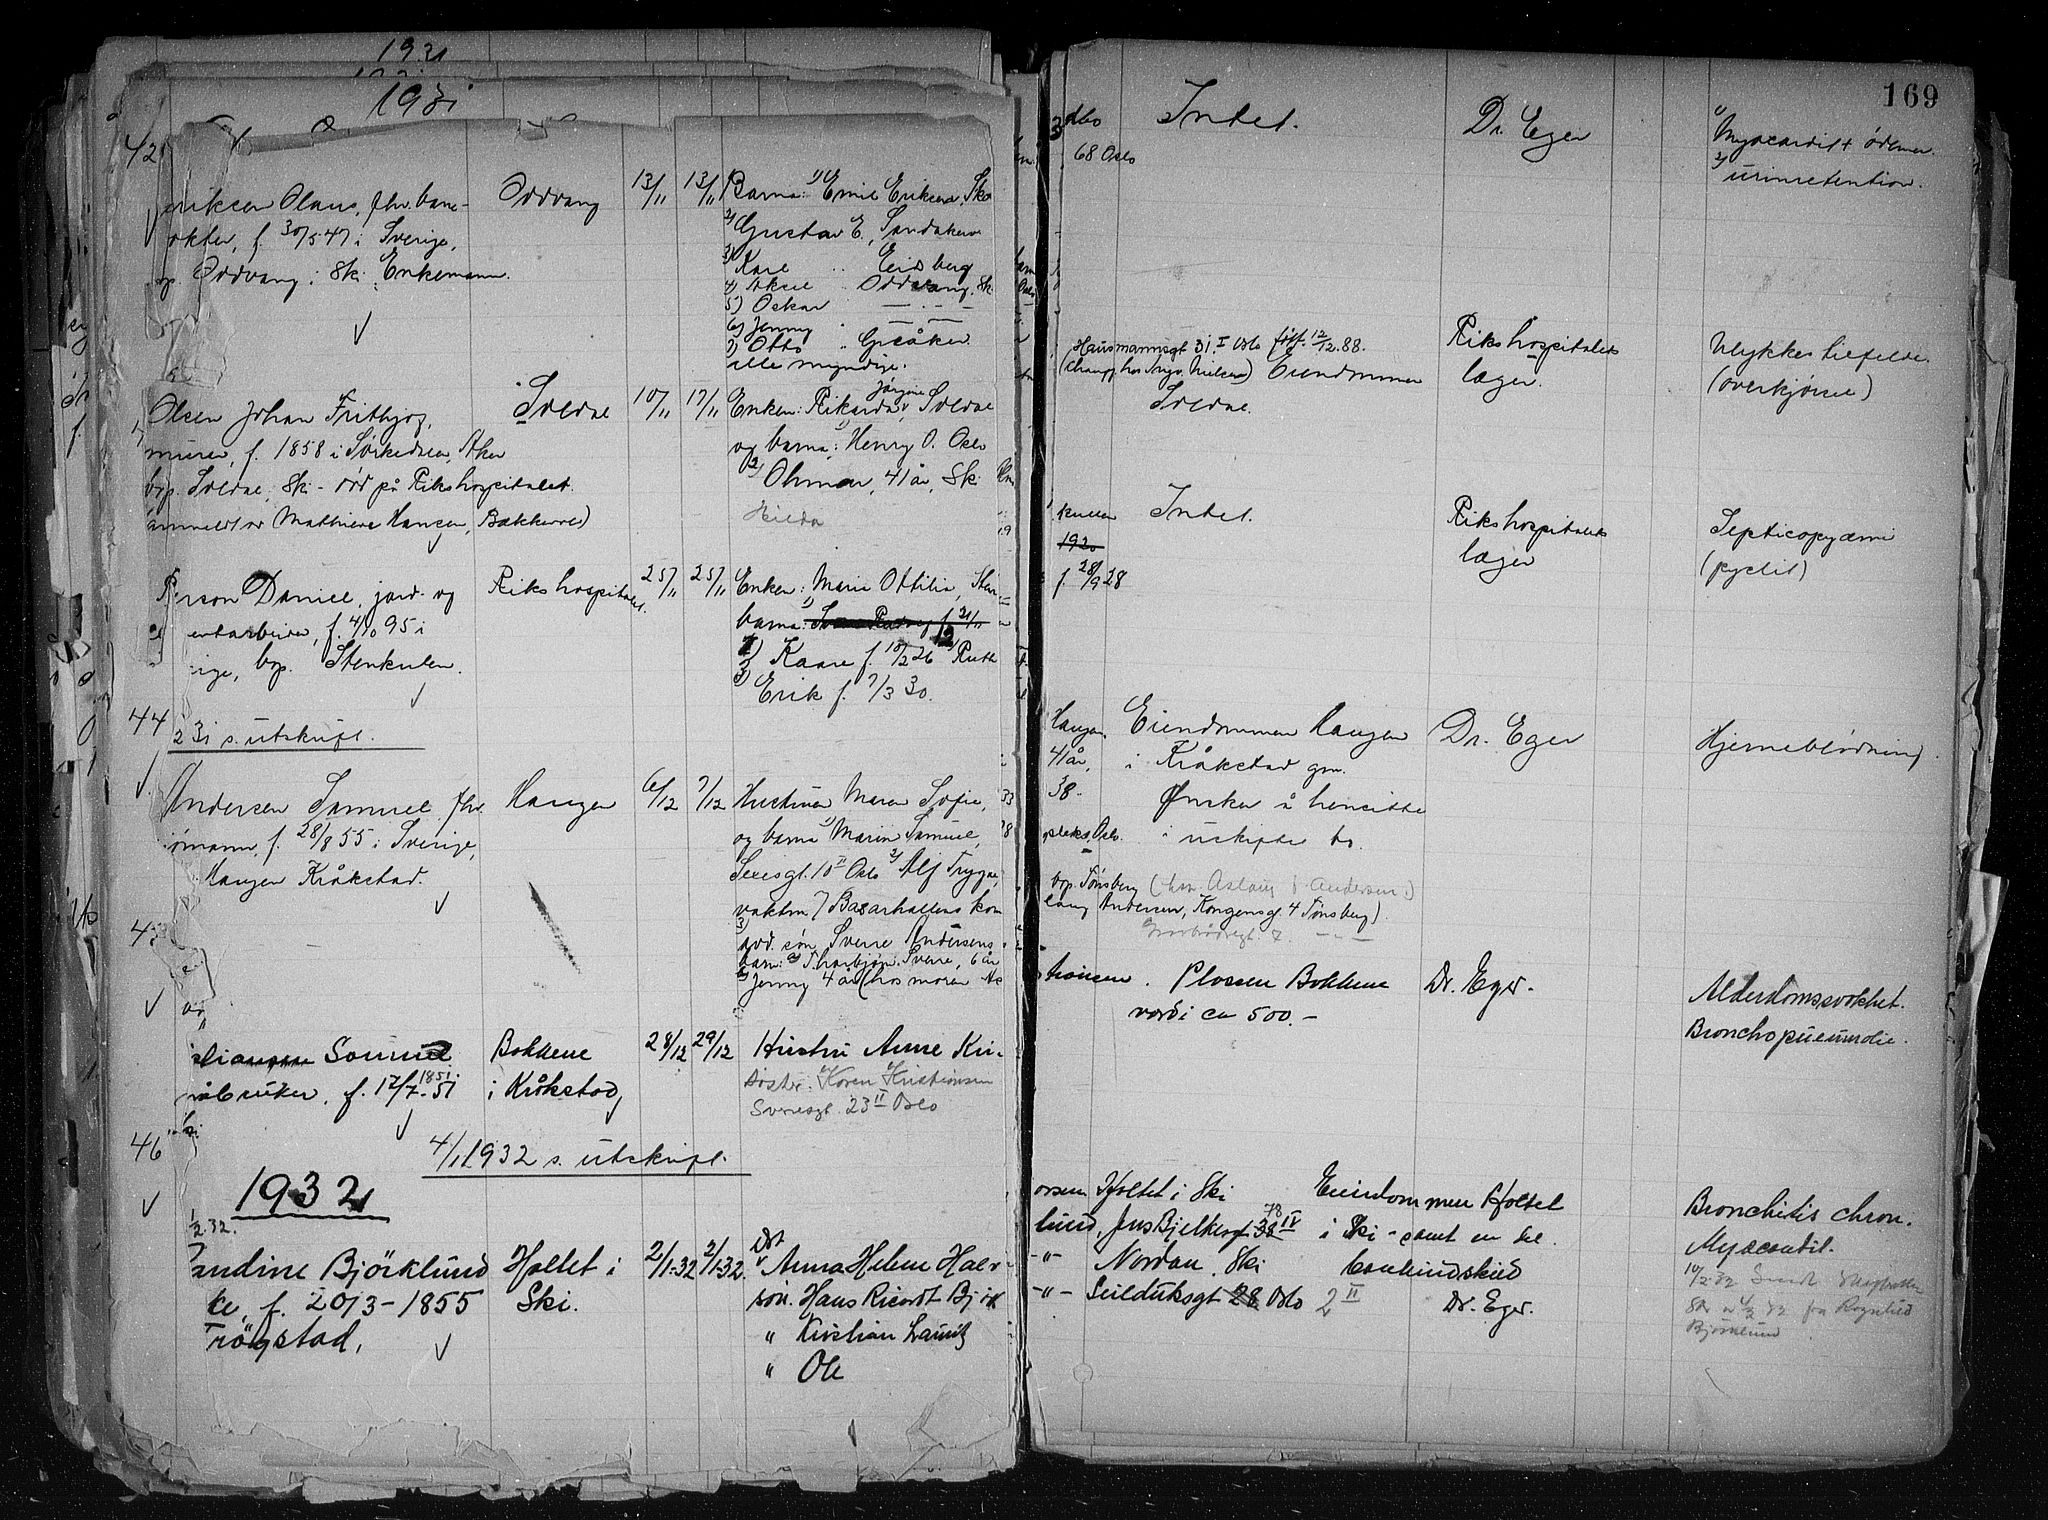 1931
1931
42
eriksen Olaus, fhv. bane-
vokter, f. 30/5 47 i Sverige,
bop. Oddvang i Ski. Enkemann.
Oddvang
13/11 13/11
Barna: 1) Emil Eriksen, Ski
2) Gustav E., Sandakerv
3) Karl " Eidsberg
4) Aksel " Oddvang, Ski
5) Oskar " — " —
6) Jenny " — " —
7) Otto " Greåker
alle myndige.
Olsen Johan Frithjof,
murer, f. 1858 i Sørkedalen, Aker
bop. Soldal, Ski - død på Rikshospitalet.
anmeldt av Mathilde Hansen, Bakkevold)
Soldal
10/11 17/11
Enken: Rikarda Jørgine, Soldal
og barna: 1) Henry O. Oslo
2) Ohmar, 41 år, Ski
Hilda
Person Daniel, jord- og
f. 4/10 95 i
bop. Stenkulen.
Rikshospitalet.
25/11 25/11
Enken: Marie Ottilia, Sten
barna: 1) f. 21/11
2) Kaare f. 10/2 26 Ruth
3) Erik f. 7/3 30.
44
2 31 s. utskrift.
Andersen Samuel fhv.
sjømann, f. 28/8 55 i Sverige,
Haugen Kråkstad.
Haugen
6/12 7/12
Hustruen Maren Sofie,
og barna 1) Marin Samuel,
10 II Oslo 2) Alf Trygve,
vaktm. / Basarhallens kom
3) avd. søn Sverre Andersens
barn: a) Thorbjørn Sverre, 6 år
b) Jenny 4 år (hos moren As
Samuel
f. 17/7-51
1851
Bakkene
i Kråkstad
28/12 29/12
Hustru Anne Kri-
Datter: Karen Kristiansen
Sverresgt. 23 II Oslo
46
4/1 1932 s. utskrift.
1932
1/2.32.
andine Björklund
ke, f. 20/3-1855
Trögstad.
Holtet i
Ski.
2/1-32 2/1-32.
Anna Helene Hal
søn. Hans Ricardt Bj
" Kristian Lauritz
" Ole
169
68 Oslo
Intet.
Dr. Eger
1) Myocardit + ødemer
2) urinretention.
Hausmannsgt 31 I Oslo født 12/12.88.
(chauff. hos Ing. Nielsen) Eiendommen
Soldal.
Rikshospitalets
læger.
Ulykkestilfelde
(overkjørsel)
kullen
1920
f. 28/9 28
Intet.
Rikshospitalets
læger
Septicopyæmi
(pyelit)
Haugen
41 år,
38 -
Oslo.
Eiendommen Haugen
i Kråkstad gm.
Ønsker å hensitte
i uskiftet bo.
Dr. Eger
Hjerneblødning
bop. Tønsberg (hos Aslaug f. Andersen.)
laug Andersen, Kongensg 4 Tønsberg).
7. — " —
tiansen. Plassen Bakkene
værdi ca 500.-
Dr. Eger.
Alderdomssvakhet.
Bronchopneumonie.
orsen Holtet i Ski
lund, Jens Bjelkesgt 78 IV
- " - Nordan, Ski
- " - Seilduksgt 28 Oslo 2 II
Eiendommen Holtet
i Ski - samt en del
bankinnskud
Dr. Eger.
Bronchitis chron.
Myocardit.
10/2 32 Sendt
fra Ragnhild
Björklund